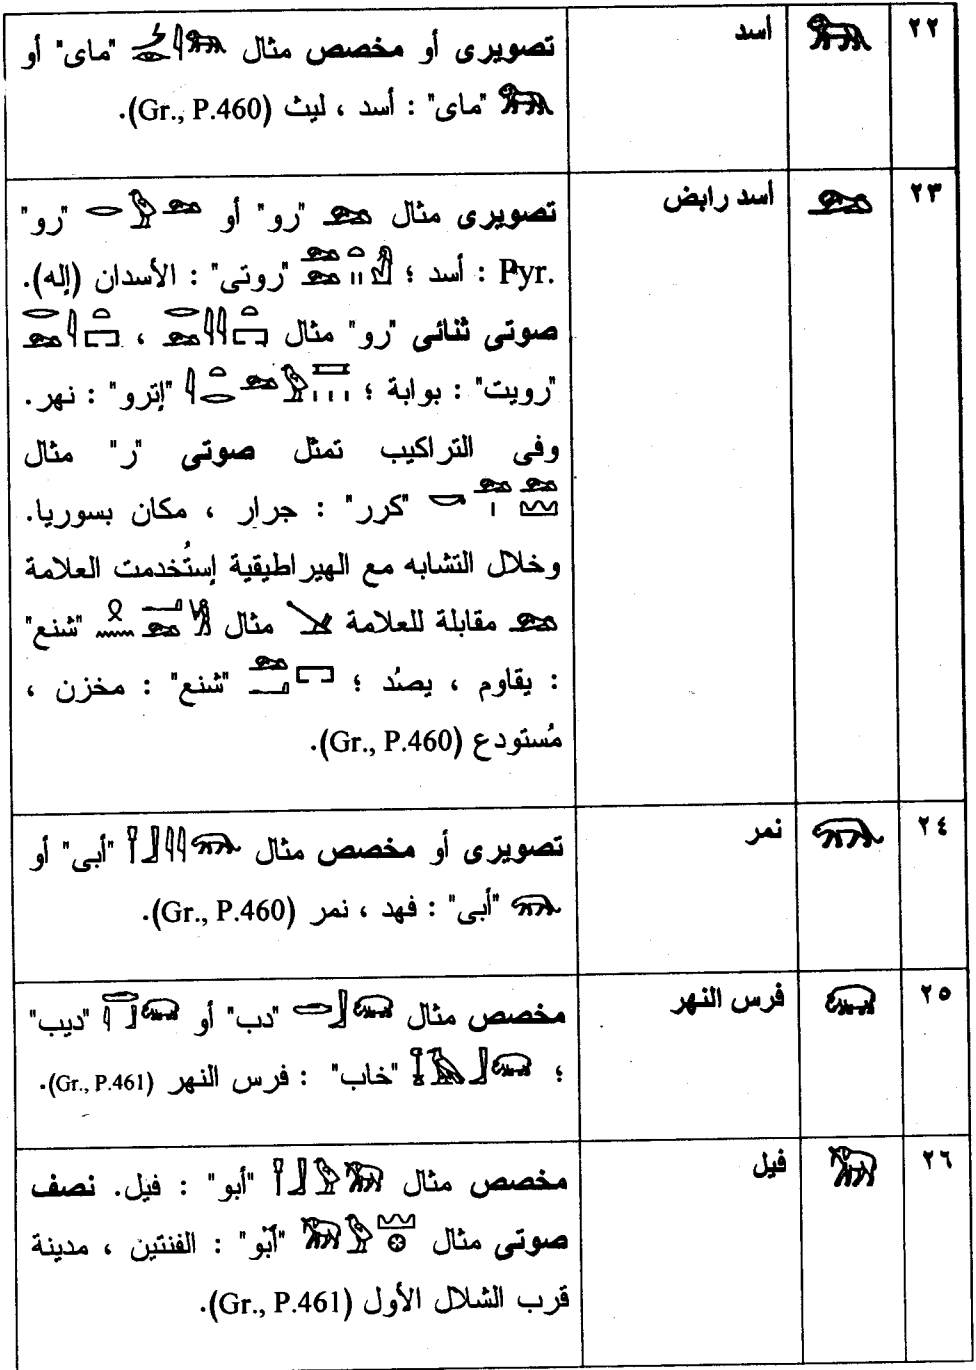 ٢٢ 𓃬 أسد تصويرى أو مخصص مثال 𓌳𓁹𓇋𓃬 "ماى" أو
𓃬 "ماى" : أسد ، ليث (Gr., P.460).
٢٣ 𓃭 أسد رابض تصويرى مثال 𓃭 "رو" أو 𓂋𓅱𓃭 "رو"
Pyr. : أسد ؛ "روتى" : الأسدان (إله).
صوتى ثنائى "رو" مثال ،
"رويت" : بوابة ؛ "إترو" : نهر.
وفى التراكيب تمثل صوتى "ر" مثال
"كرر" : جرار ، مكان بسوريا.
وخلال التشابه مع الهيراطيقية إستُخدمت العلامة
𓃭 مقابلة للعلامة مثال "شنع"
: يقاوم ، يصُد ؛ "شنع" : مخزن ،
مُستودع (Gr., P.460).
٢٤ 𓃮 نمر تصويرى أو مخصص مثال 𓍋𓃀𓇋𓇋𓃮 "أبى" أو
𓃮 "أبى" : فهد ، نمر (Gr., P.460).
٢٥ 𓃯 فرس النهر مخصص مثال 𓂧𓃀𓃯 "دب" أو 𓇋𓂧𓃀𓃯 "ديب"
؛ "خاب" : فرس النهر (Gr., P.461).
٢٦ 𓃰 فيل مخصص مثال 𓍋𓃀𓅱𓃰 "أبو" : فيل. نصف
صوتى مثال 𓃰𓅱𓈉𓊖 "آبْو" : الفنتين ، مدينة
قرب الشلال الأول (Gr., P.461).